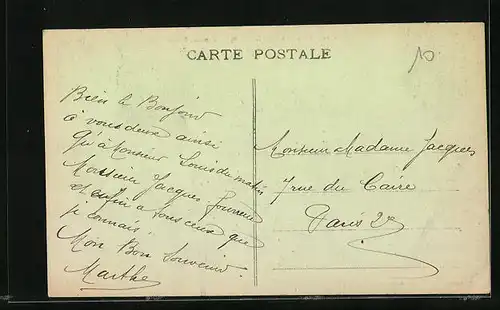 CARTE POSTALE
10
Bien le Bonjour
à vous deux ainsi
Qu'à Monsieur Louis du matin
Monsieur Jacques
et enfin a tous ceux que
je connais
Mon Bon Souvenir.
Marthe
Monsieur Madame Jacques
7 rue du Caire
Paris 2e